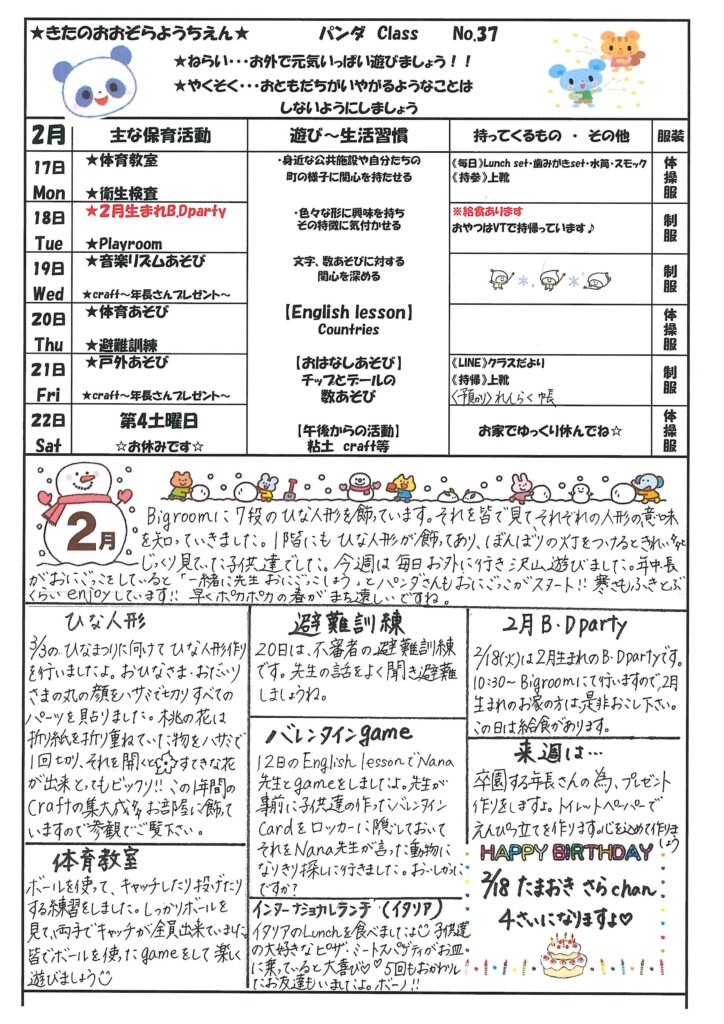 ★きたのおおぞらようちえん★ パンダ Class No.37
★ねらい・・・お外で元気いっぱい遊びましょう!!
★やくそく・・・おともだちがいやがるようなことは
しないようにしましょう
2月 主な保育活動 遊び~生活習慣 持ってくるもの ・ その他 服装
17日 Mon
★体育教室
★衛生検査
・身近な公共施設や自分たちの
町の様子に関心を持たせる
《毎日》Lunch set・歯みがきset・水筒・スモック
《持参》上靴
体操服
18日 Tue
★2月生まれB.Dparty
★Playroom
・色々な形に興味を持ち
その特徴に気付かせる
※給食あります
おやつはVTで持帰っています♪
制服
19日 Wed
★音楽リズムあそび
★craft~年長さんプレゼント~
文字、数あそびに対する
関心を深める
制服
20日 Thu
★体育あそび
★避難訓練
【English lesson】
Countries
体操服
21日 Fri
★戸外あそび
★craft~年長さんプレゼント~
【おはなしあそび】
チップとデールの
数あそび
《LINE》クラスだより
《持帰》上靴
〈預かり〉れんらく帳
制服
22日 Sat
第4土曜日
☆お休みです☆
【午後からの活動】
粘土 craft等
お家でゆっくり休んでね☆
体操服
2月
Bigroomに7段のひな人形を飾っています。それを皆で見てそれぞれの人形の意味
を知っていきました。1階にもひな人形が飾ってあり、ぼんぼりの灯をつけるときれい〜と
じっくり見ていた子供達でした。今週は毎日お外に行き沢山遊びました。年中長
がおにごっこをしていると「一緒に先生おにごっこしよう」とパンダさんもおにごっこがスタート!!寒さもふきとぶ
くらいenjoyしています!!早くポカポカの春がまち遠しいですね。
ひな人形
3/3のひなまつりに向けてひな人形作り
を行いましたよ。おひなさま・おだいり
さまの丸の顔をハサミで切りすべての
パーツを貼りました。桃の花は
折り紙を折り重ねていた物をハサミで
1回切り、それを開くとすてきな花
が出来とってもビックリ!!この1年間の
Craftの集大成をお部屋に飾って
いますので参観でご覧下さい。
体育教室
ボールを使って、キャッチしたり投げたり
する練習をしました。しっかりボールを
見て、両手でキャッチが全員出来ていました。
皆でボールを使ったgameをして楽しく
遊びましょう
避難訓練
20日は、不審者の避難訓練
です。先生の話をよく聞き避難
しましょうね。
バレンタインgame
12日のEnglish lessonでNana
先生とgameをしましたよ。先生が
事前に子供達の作ったバレンタイン
Cardをロッカーに隠しておいて
それをNana先生が言った動物に
なりきり探しに行きました。おいしかった
ですか?
インターナショナルランチ (イタリア)
イタリアのLunchを食べましたよ 子供達
の大好きなピザ・ミートスパゲティがお皿
に乗っていると大喜び♡♡5回もおかわりし
たお友達もいましたよ。ボーノ!!
2月 B・Dparty
2/18(火)は2月生まれのB・Dpartyです。
10:30~Bigroomにて行いますので2月
生まれのお家の方は是非お越し下さい。
この日は給食があります。
来週は…
卒園する年長さんの為、プレゼント
作りをしますよ。トイレットペーパーで
えんぴつ立てを作ります。心を込めて作りましょう
HAPPY BIRTHDAY
2/18 たまおき さら chan
4さいになりますよ♡